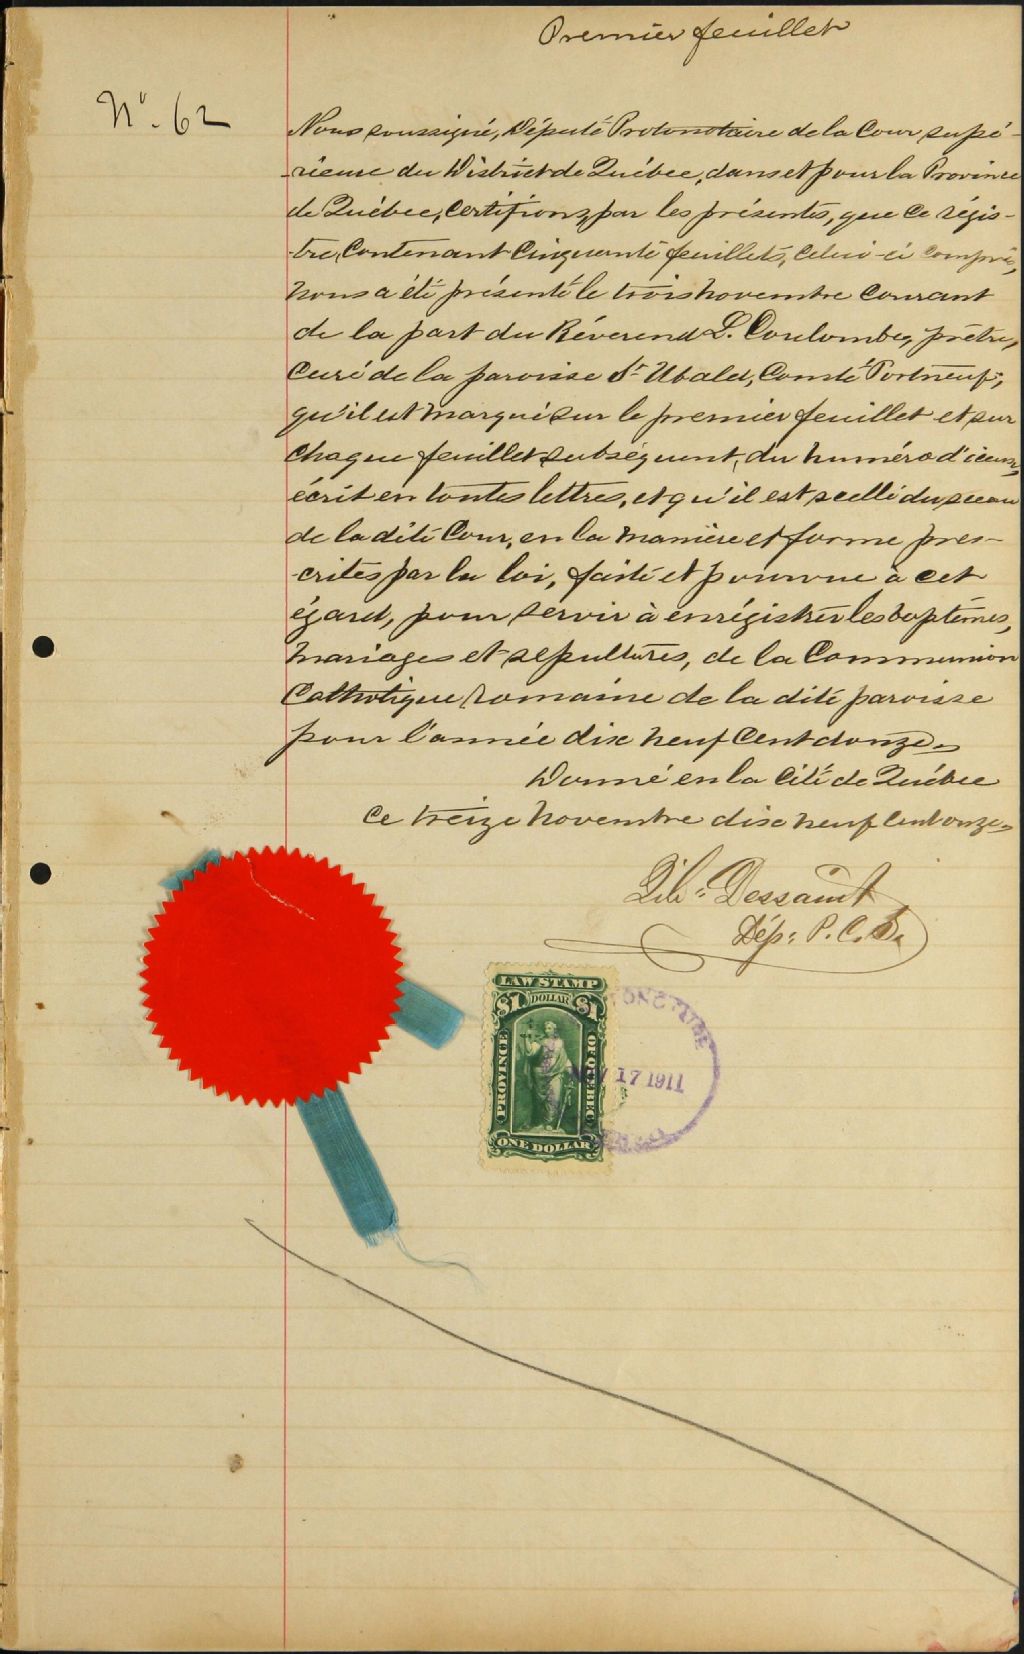 Premier feuillet
No. 62
Nous soussigné, Député Protonotaire de la Cour supé-
-rieure du District de Québec, dans et pour la Province
de Québec, Certifions, par les présentes, que ce régis-
-tre, Contenant Cinquante feuillets, Celui-ci compris,
nous a été présenté le trois novembre Courant
de la part du Révérend L. Coulombe, prêtre,
Curé de la paroisse St Ubald, Comté Portneuf,
qu'il est marqué sur le premier feuillet et sur
chaque feuillet subséquent, du numéro d'iceux,
écrit en toutes lettres, et qu'il est scellé du sceau
de la dite Cour, en la manière et forme pres-
-crites par la loi, faite et pourvue à cet
égard, pour servir à enrégistrer les baptêmes,
mariages et sépultures, de la Communion
Catholique romaine de la dite paroisse
pour l'année dix neuf Cent douze.
Donné en la Cité de Québec
ce treize novembre dix neuf Cent onze.
Dessaint
Dép: P. C. S.
LAW STAMP
$1 DOLLAR $1
PROVINCE OF QUEBEC
ONE DOLLAR
17 1911